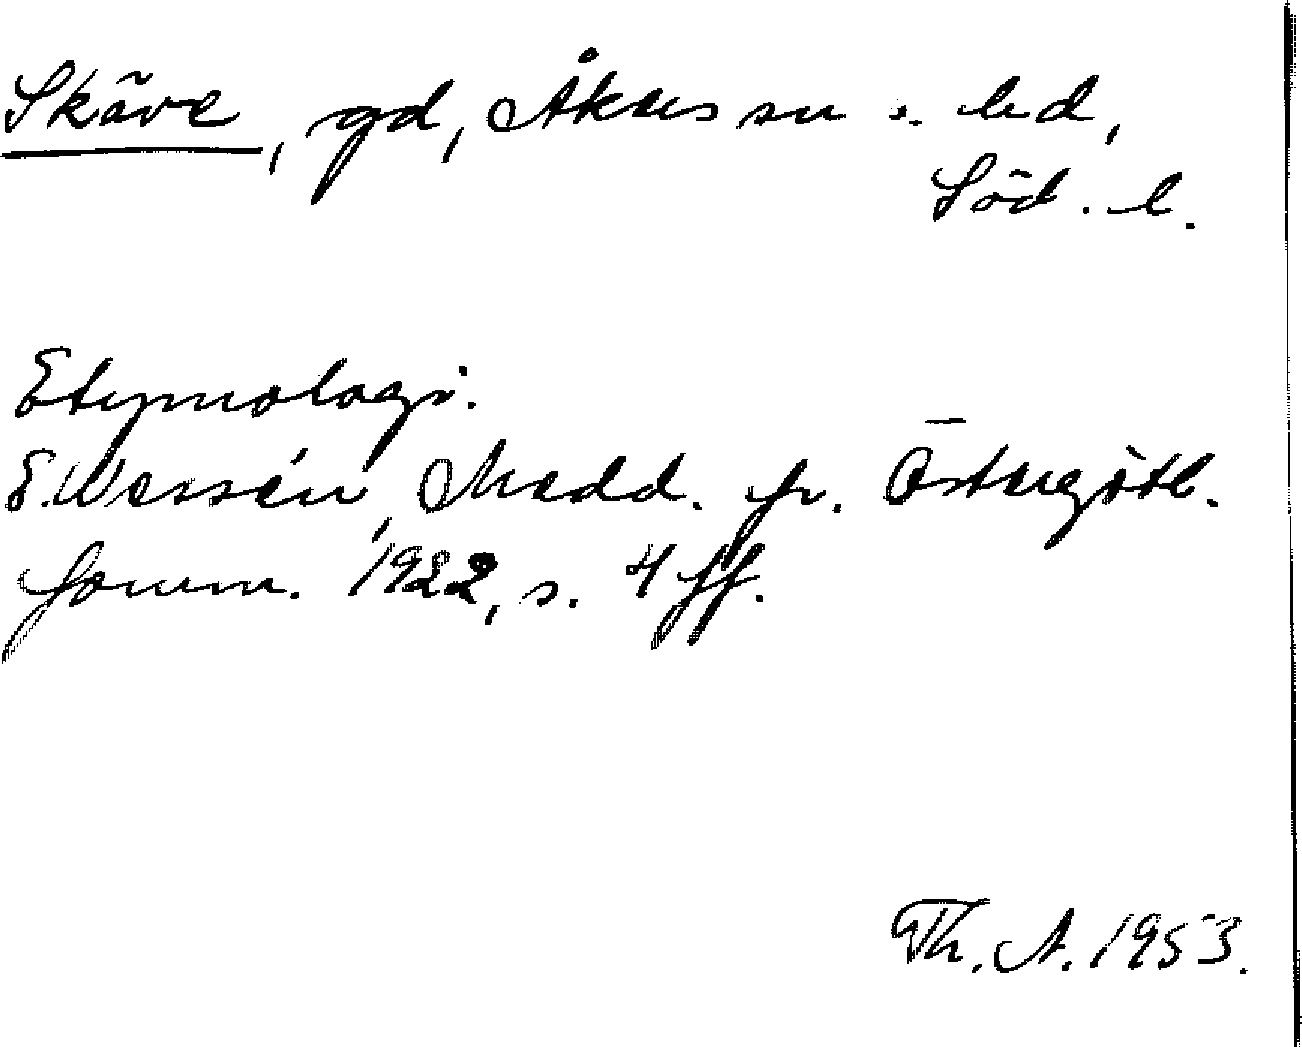 Skäve, gd, Åkers sn o. hd,
Söd. l.
Etymologi.
E. Wessén, Medd. fr. Östergötl.
fornm. 1922, s. 4 ff.
Th. A. 1953.